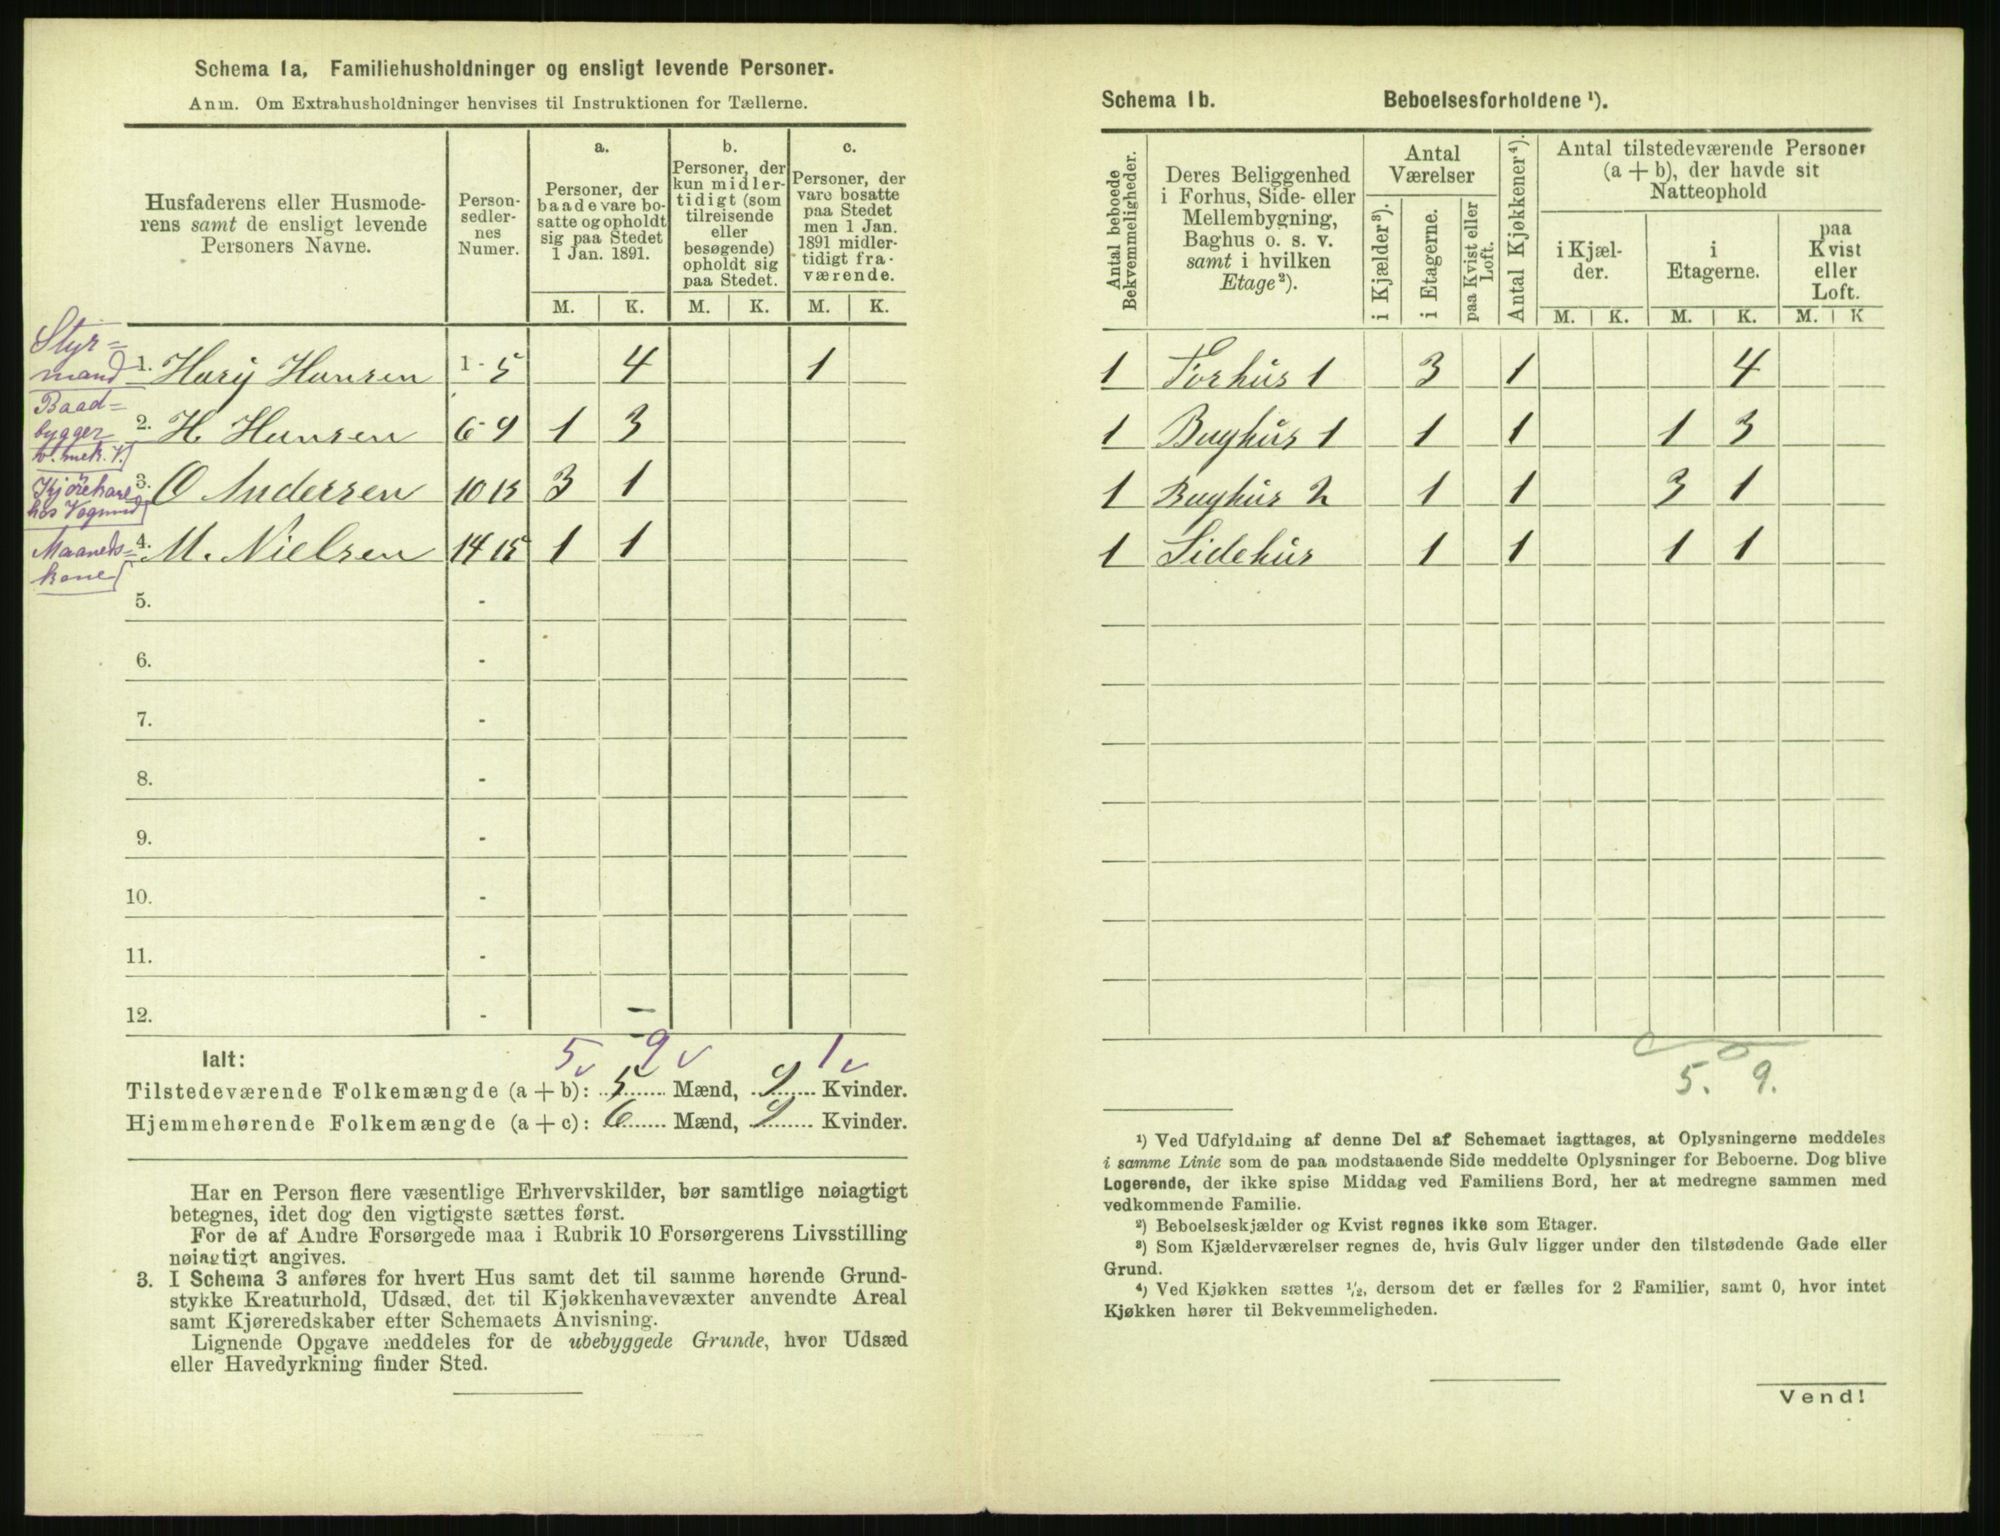 Schema 1a, Familiehusholdninger og ensligt levende Personer.
Anm. Om Extrahusholdninger henvises til Instruktionen for Tællerne.
Husfaderens eller Husmode-
rens samt de ensligt levende
Personers Navne.
Person-
sedler-
nes
Numer.
a.
Personer, der
baade vare bo-
satte og opholdt
sig paa Stedet
1 Jan. 1891.
b.
Personer, der
kun midler-
tidigt (som
tilreisende
eller
besøgende)
opholdt sig
paa Stedet.
c.
Personer, der
vare bosatte
paa Stedet
men 1 Jan.
1891 midler-
tidigt fra-
værende.
M. K. M. K. M. K.
Styr=
mand 1. Harij Hansen 1 - 5 4 1
Baad=
bygger 2. H. Hansen 6 - 9 1 3
3. O Andersen 10 13 3 1
hos
Maaneds= 4. M. Nielsen 14 15 1 1
kone
5. -
6. -
7. -
8. -
9. -
10. -
11. -
12. -
Ialt: 5 9 1
Tilstedeværende Folkemængde (a + b): 5 Mænd, 9 Kvinder.
Hjemmehørende Folkemængde (a + c): 6 Mænd, 9 Kvinder.
Har en Person flere væsentlige Erhvervskilder, bør samtlige nøiagtigt
betegnes, idet dog den vigtigste sættes først.
For de af Andre Forsørgede maa i Rubrik 10 Forsørgerens Livsstilling
nøiagtigt angives.
3. I Schema 3 anføres for hvert Hus samt det til samme hørende Grund-
stykke Kreaturhold, Udsæd, det til Kjøkkenhavevæxter anvendte Areal
samt Kjøreredskaber efter Schemaets Anvisning.
Lignende Opgave meddeles for de ubebyggede Grunde, hvor Udsæd
eller Havedyrkning finder Sted.
Schema 1b. Beboelsesforholdene ¹).
Antal beboede
Bekvemmeligheder.
Deres Beliggenhed
i Forhus, Side- eller
Mellembygning,
Baghus o. s. v.
samt i hvilken
Etage ²).
Antal
Værelser
i Kjælder ³).
i Etagerne.
paa Kvist eller
Loft.
Antal Kjøkkener ⁴).
Antal tilstedeværende Personer
(a + b), der havde sit
Natteophold
i Kjæl-
der.
i
Etagerne.
paa
Kvist
eller
Loft.
M. K. M. K. M. K
1 Forhus 1 3 1 4
1 Baghus 1 1 1 1 3
1 Baghus 2 1 1 3 1
1 Sidehus 1 1 1 1
5. 9.
¹) Ved Udfyldning af denne Del af Schemaet iagttages, at Oplysningerne meddeles
i samme Linie som de paa modstaaende Side meddelte Oplysninger for Beboerne. Dog blive
Logerende, der ikke spise Middag ved Familiens Bord, her at medregne sammen med
vedkommende Familie.
²) Beboelseskjælder og Kvist regnes ikke som Etager.
³) Som Kjælderværelser regnes de, hvis Gulv ligger under den tilstødende Gade eller
Grund.
⁴) Ved Kjøkken sættes ¹/₂, dersom det er fælles for 2 Familier, samt 0, hvor intet
Kjøkken hører til Bekvemmeligheden.
Vend!